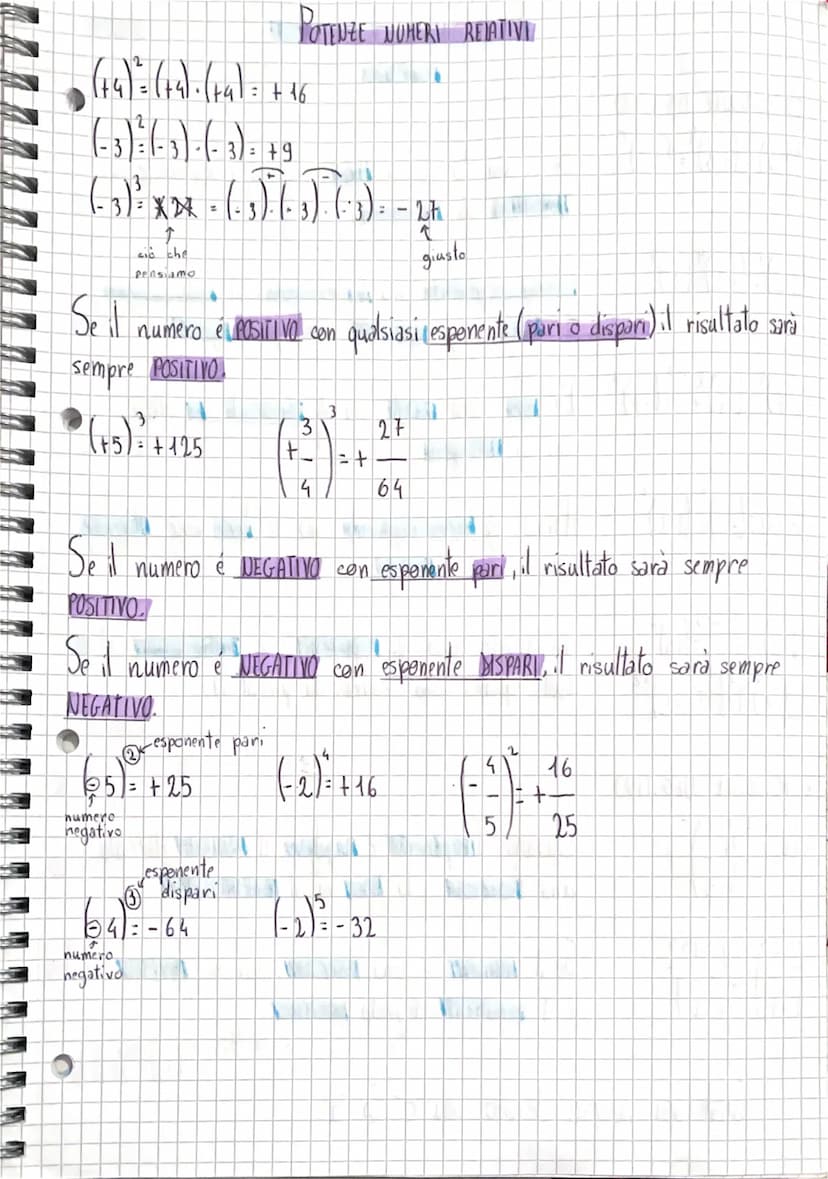 POTENZE NUMERI RELATIVI
(+4)² = (+4) · (+4) = +16
(-3)² = (-3) · (-3) = +9
(-3)³ = = (-3) · (-3) · (-3) = -27
ciò che pensiamo
giusto
Se il numero é POSITIVO con qualsiasi esponente (pari o dispari) il risultato sarà
sempre POSITIVO.
(+5)³ = +125 (+3/4)³ = +27/64
Se il numero é NEGATIVO con esponente pari, il risultato sarà sempre
POSITIVO.
Se il numero é NEGATIVO con esponente DISPARI, il risultato sarà sempre
NEGATIVO.
esponente pari
(-5)² = +25 (-2)⁴ = +16 (-4/5)² = +16/25
numero
negativo
esponente
dispari
(-4)³ = -64 (-2)⁵ = -32
numero
negativo